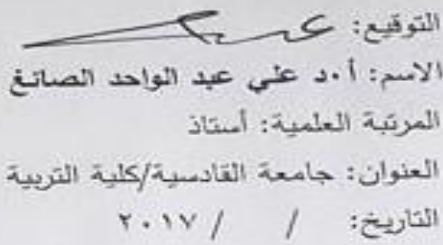 التوقيع:
الاسم: أ.د علي عبد الواحد الصائغ
المرتبة العلمية: أستاذ
العنوان: جامعة القادسية/كلية التربية
التاريخ: / / ٢٠١٧